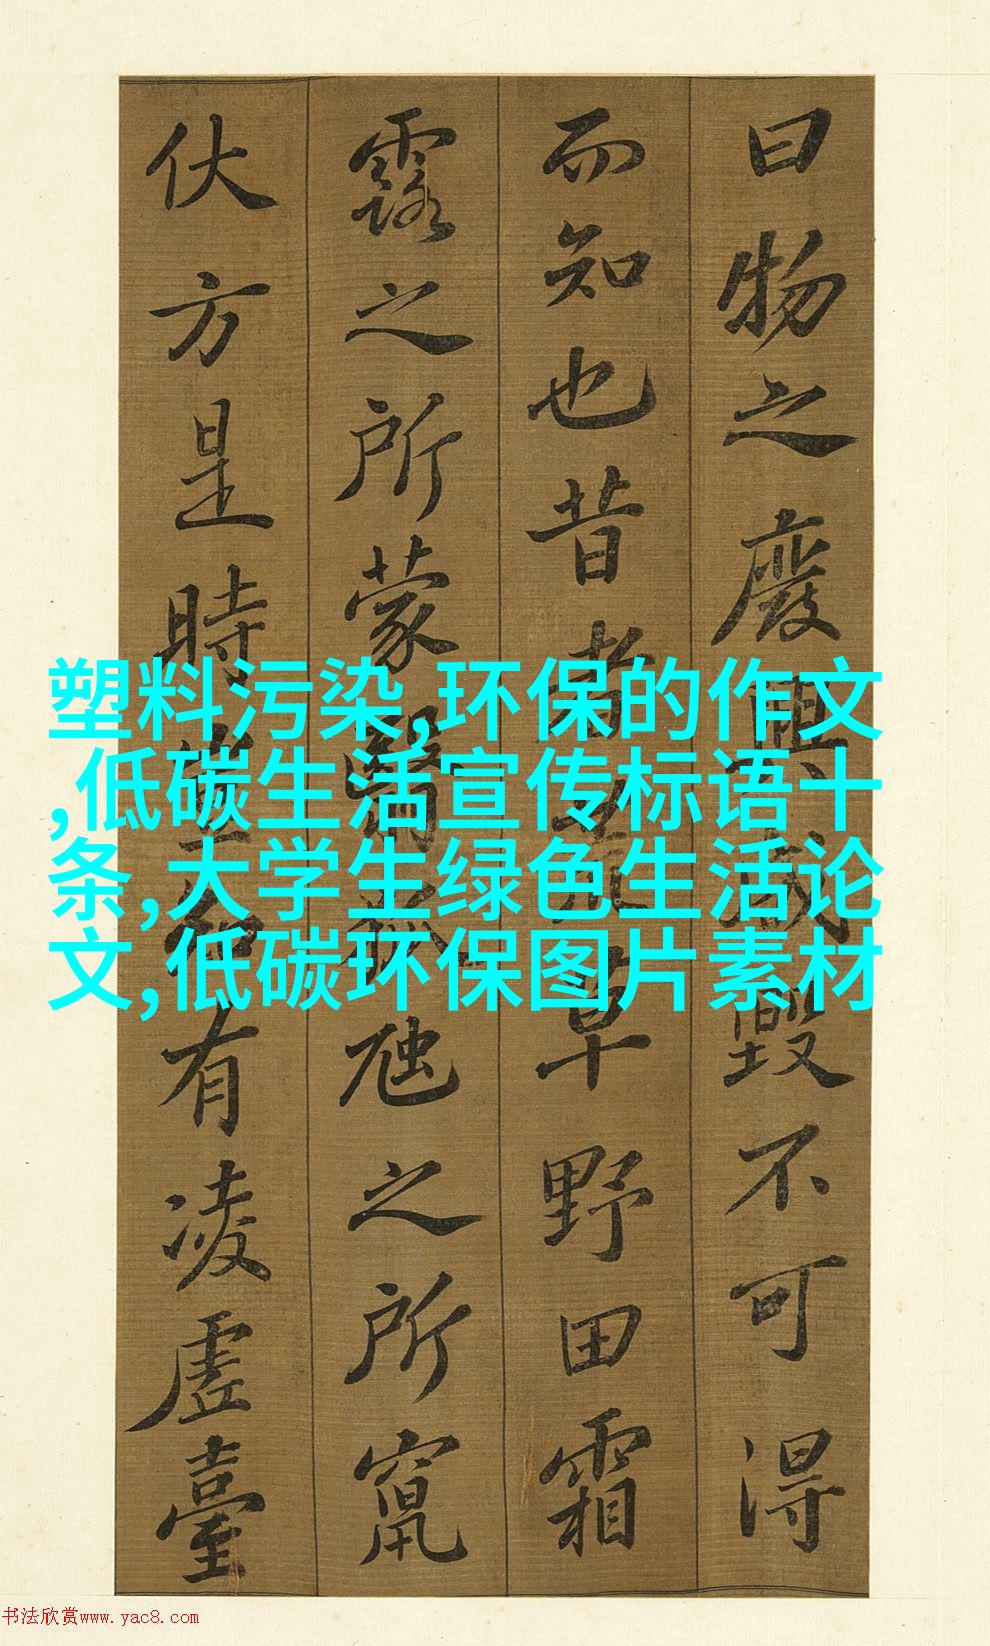 曰物之廢興成毀不可得
而知也昔者荒草野田霜
露之所蒙翳狐虺之所竄
伏方是時豈知有凌虛臺
塑料污染,环保的作文
,低碳生活宣传标语十
条,大学生绿色生活论
文,低碳环保图片素材
书法欣赏www.yac8.com